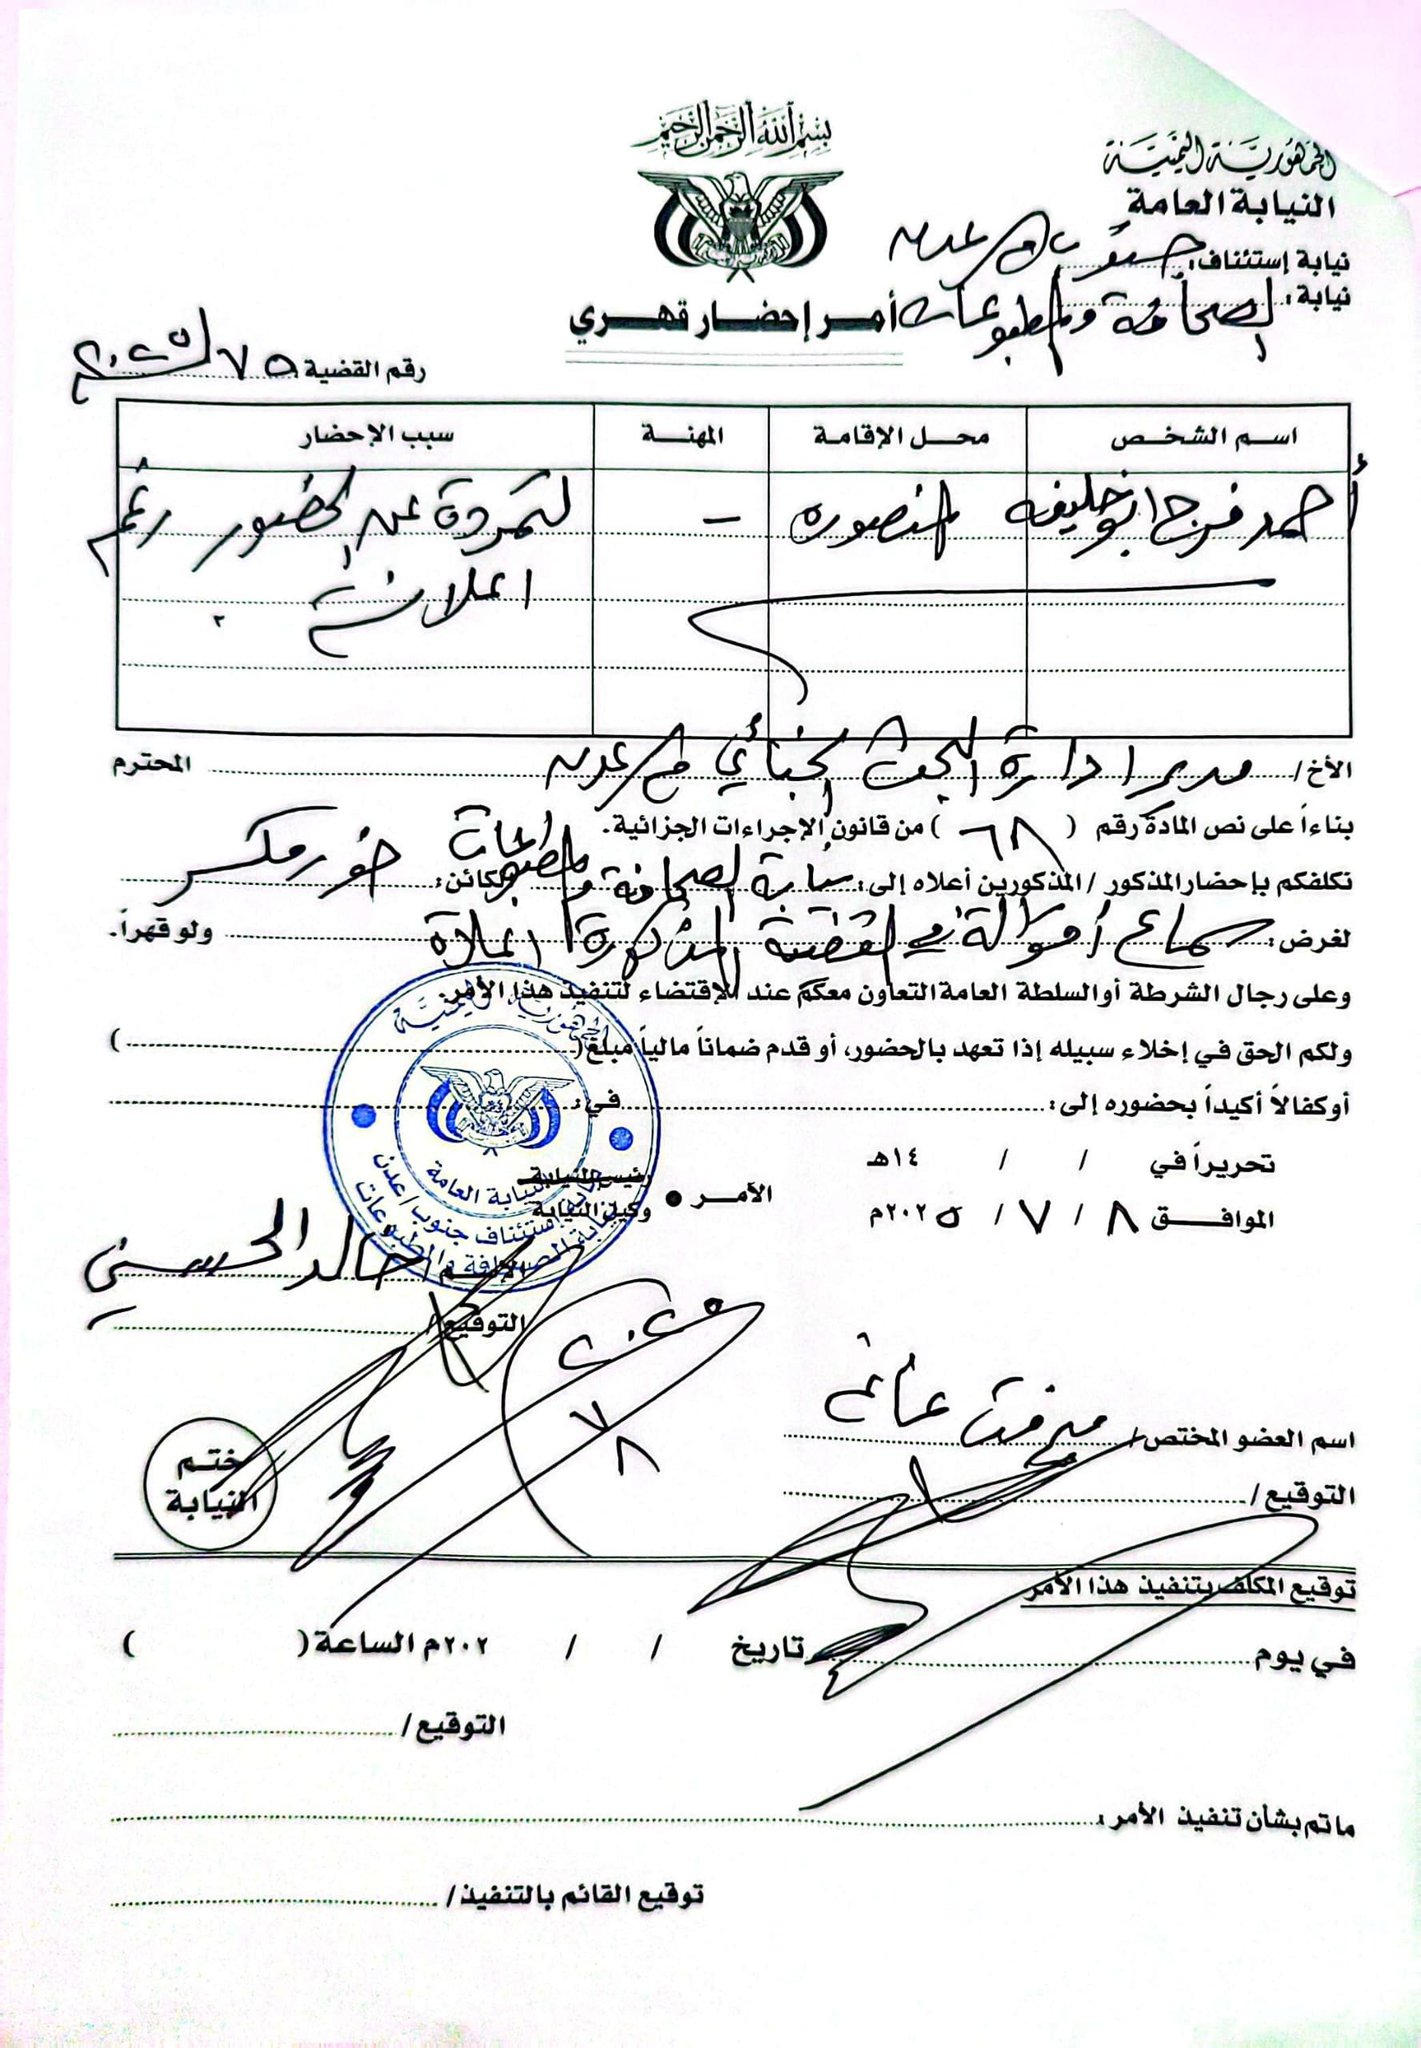 بسم الله الرحمن الرحيم
الجمهورية اليمنية
النيابة العامة
نيابة إستئناف: جنوب م/عدن
نيابة: الصحافة والمطبوعات
أمر إحضار قهري
رقم القضية ٧٥ لسنة ٢٠٢٥م
اسم الشخص محل الإقامة المهنة سبب الإحضار
أحمد فرج ابو خليفه المنصوره - لتمردة عن الحضور رغم
اعلانه
الأخ/ مدير ادارة البحث الجنائي م/عدن المحترم
بناءاً على نص المادة رقم ( ٦٨ ) من قانون الإجراءات الجزائية.
نكلفكم بإحضار المذكور / المذكورين أعلاه إلى: نيابة الصحافة والمطبوعات الكائن: خورمكسر
لغرض: سماع أقوالة في القضية المذكورة اعلاة ولو قهراً.
وعلى رجال الشرطة أو السلطة العامة التعاون معكم عند الإقتضاء لتنفيذ هذا الأمر.
ولكم الحق في إخلاء سبيله إذا تعهد بالحضور، أو قدم ضماناً مالياً مبلغ ( )
أو كفالاً أكيداً بحضوره إلى: في:
تحريراً في / / ١٤هـ
الموافق ٨ / ٧ / ٢٠٢٥م
الآمر • رئيس النيابة
وكيل النيابة
الجمهورية اليمنية
النيابة العامة
نيابة استئناف جنوب/عدن
نيابة الصحافة والمطبوعات
الإسم خالد الحسني
التوقيع/
٢٠٢٥
٧
٨
اسم العضو المختص/ ميرفت
التوقيع/
ختم
النيابة
توقيع المكلف بتنفيذ هذا الأمر
في يوم تاريخ / / ٢٠٢م الساعة ( )
التوقيع/
ما تم بشأن تنفيذ الأمر:
توقيع القائم بالتنفيذ/